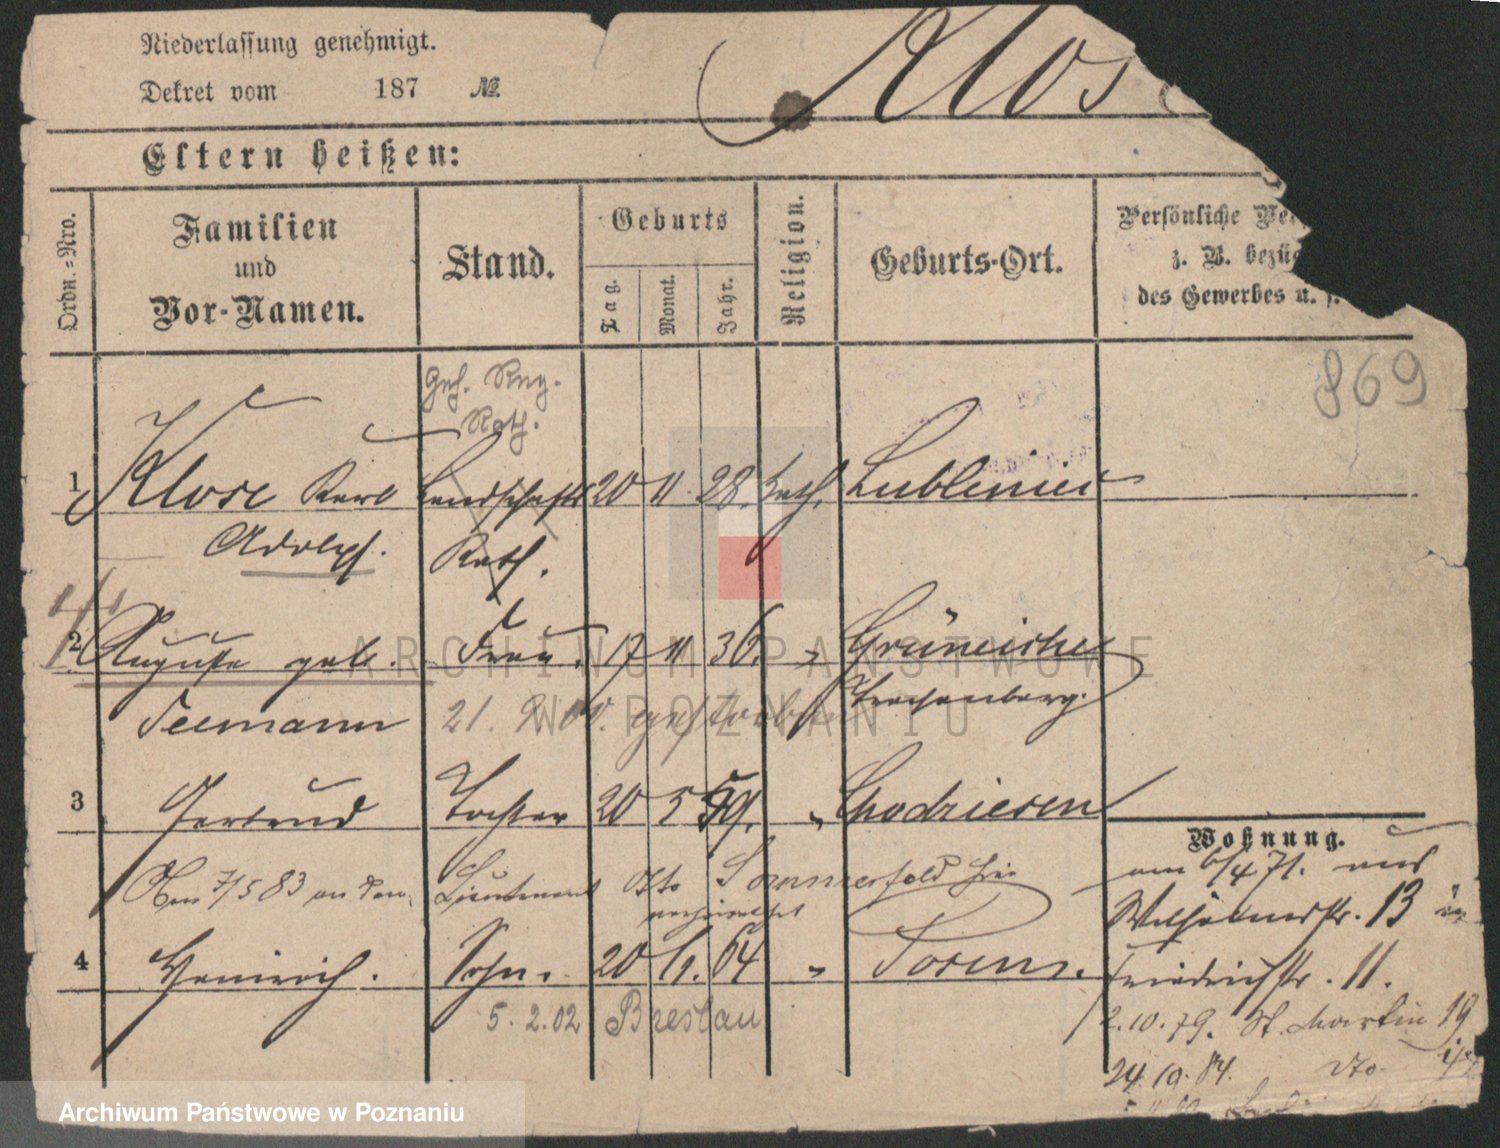 Niederlassung genehmigt.
Dekret vom 187 №.
Klos
Eltern heißen:
Ordn.-Nro.
Familien
und
Vor-Namen.
Stand.
Geburts
Tag.
Monat.
Jahr.
Religion.
Geburts-Ort.
Persönliche Ve
z. B. bezüg
des Gewerbes u. s.
869
Geh. Reg.
Rath.
1 Klose Karl Landschafts 20 11 28. kath. Lublinitz
Adolph. Rath.
2 Auguste geb. Frau. 17 11 36. " Grüneiche
Seemann 21. gestorben Trachenberg.
3 Gertrud Tochter 20 5 59. " Chodziesen
Wohnung.
7/5 83 an den Lieutenant Otto Sommerfeld hier
verheirathet
am 6/4 71. aus
Wilhelmstr. 13 in
Friedrichstr. 11.
4 Heinrich. Sohn. 20 6. 64 " Posen.
5. 2. 02 Breslau
2.10.79. St. Martin 19
24.10.84. dto.
ARCHIWUM PAŃSTWOWE
W POZNANIU
Archiwum Państwowe w Poznaniu